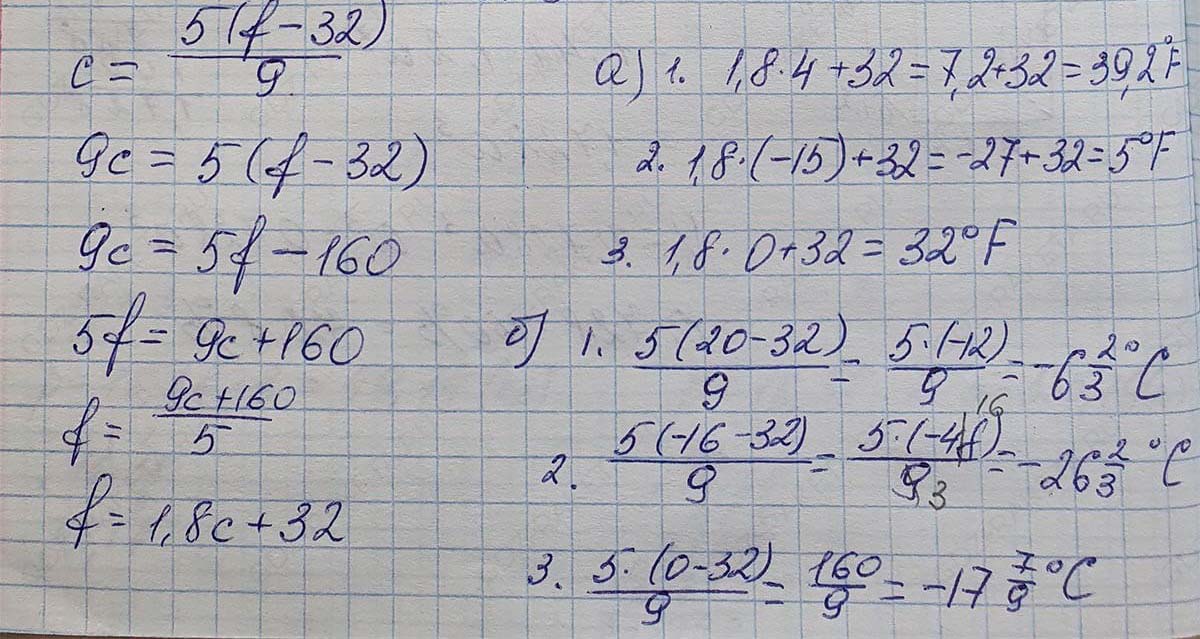 c = 5(f-32)/9
9c = 5(f-32)
9c = 5f-160
5f = 9c+160
f = 9c+160/5
f = 1,8c+32
а) 1. 1,8·4+32=7,2+32=39,2°F
2. 1,8·(-15)+32=-27+32=5°F
3. 1,8·0+32=32°F
б) 1. 5(20-32)/9 = 5·(-12)/9 = -6 2/3 °C
2. 5(-16-32)/9 = 5·(-48) 16/9 3 = -26 2/3 °C
3. 5·(0-32)/9 = 160/9 = -17 7/9 °C